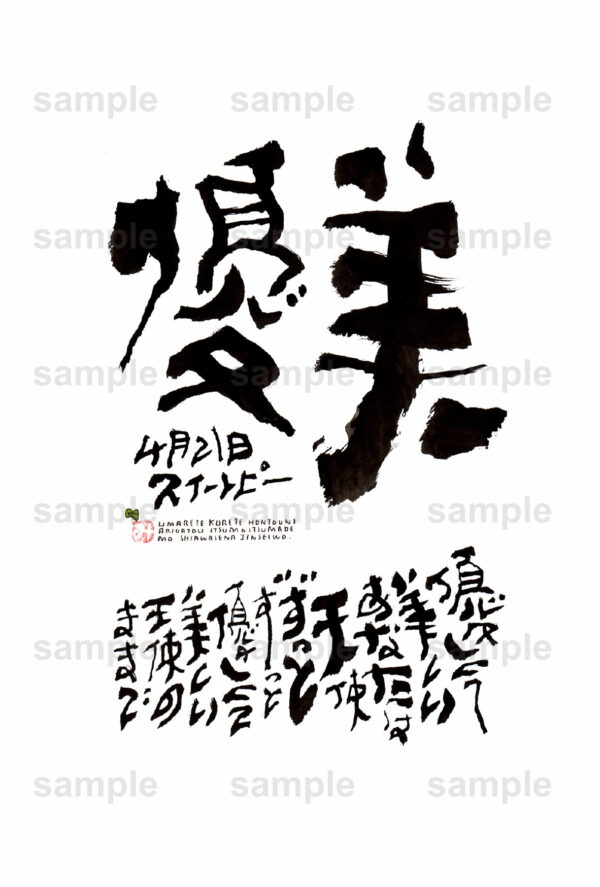 sample sample sample
優美
sample sample sample
sample sample sample
4月21日
スイートピー
sample sample sample
UMARETE KURETE HONTOUNI
ARIGATOU ITSUMO ITSUMADE
MO SHIAWASENA JINSEIWO.
優しくて
美しい
あなたは
天使
ずっと
ずーっと
優しくて
美しい
天使の
ままで
sample sample sample
sample sample sample